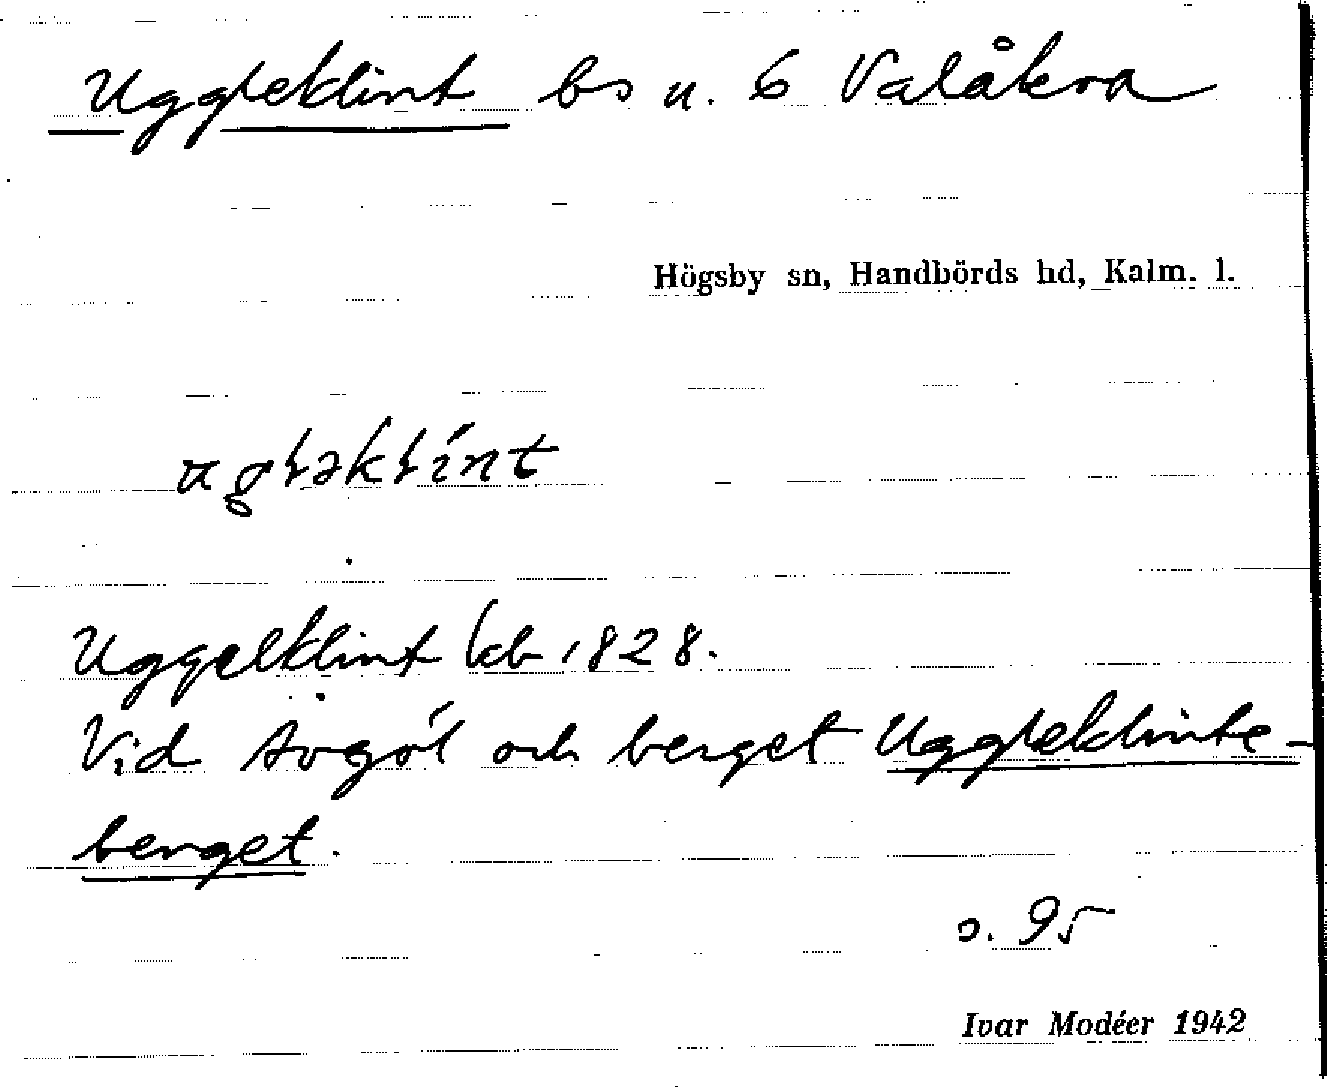 Uggleklint bs u. 6 Valåkra
Högsby sn, Handbörds hd, Kalm. l.
Uggelklint kb 1828.
Vid Avgöl och berget Uggleklinte-
berget.
s. 95
Ivar Modéer 1942